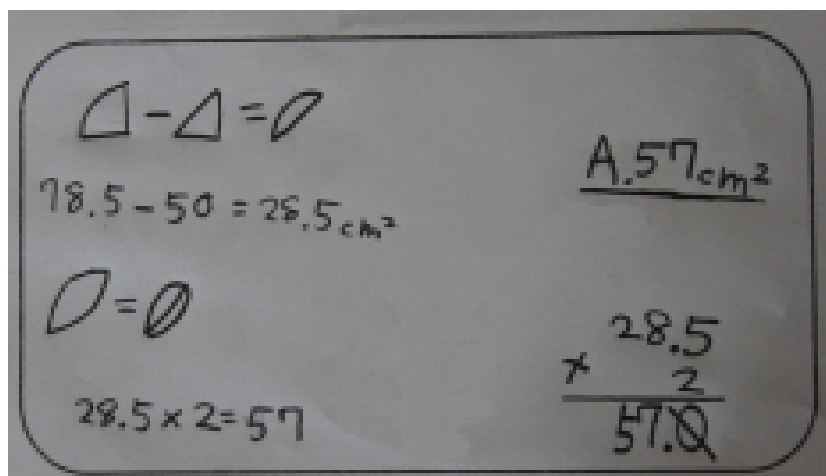 - =
78.5 - 50 = 28.5cm²
=
28.5 × 2 = 57
A.57cm²
28.5
× 2
57.0